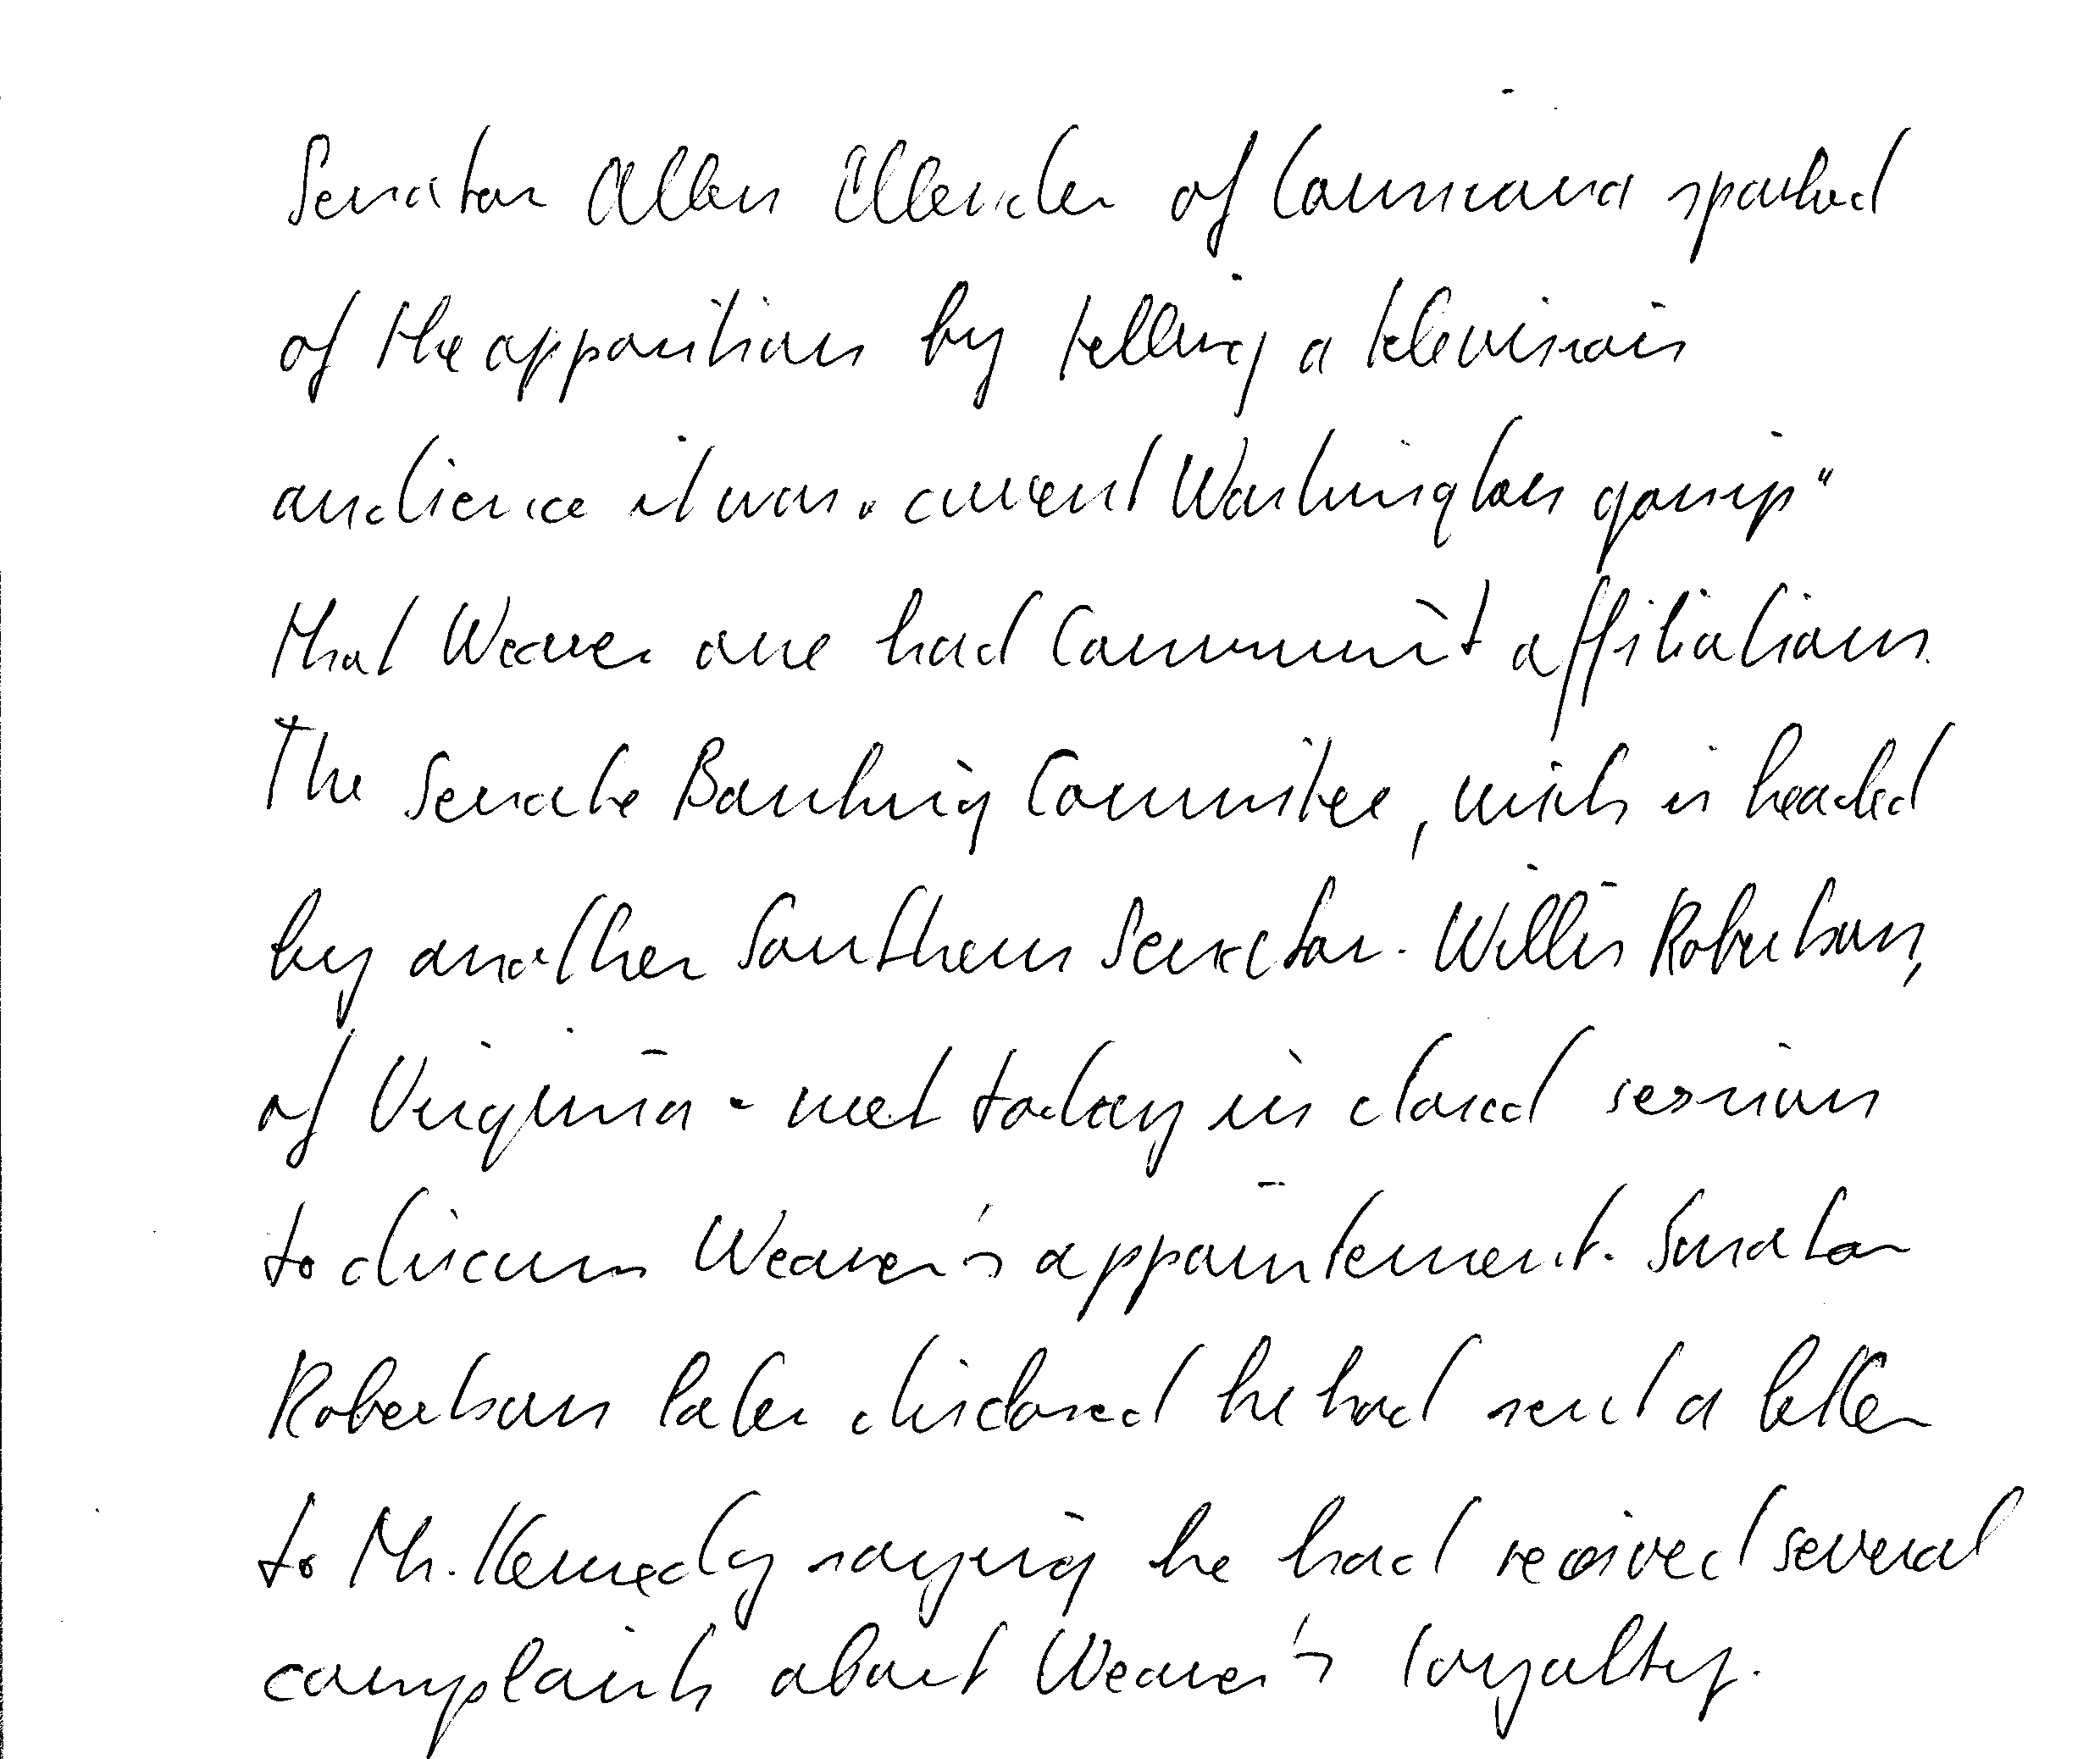 Senator Allen Ellender of Louisiana sparked
of the opposition by telling a television
audience it was "current Washington gossip"
that Weaver one had Communist affiliations.
The Senate Banking Committee, wich is headed
by another Southern Senator - Willis Robertson,
of Virginia - met today in closed session
to discuss Weaver's appointement. Senator
Robertson later disclosed he had send a letter
to Mr. Kennedy saying he had received several
complaints about Weaver's loyalty.